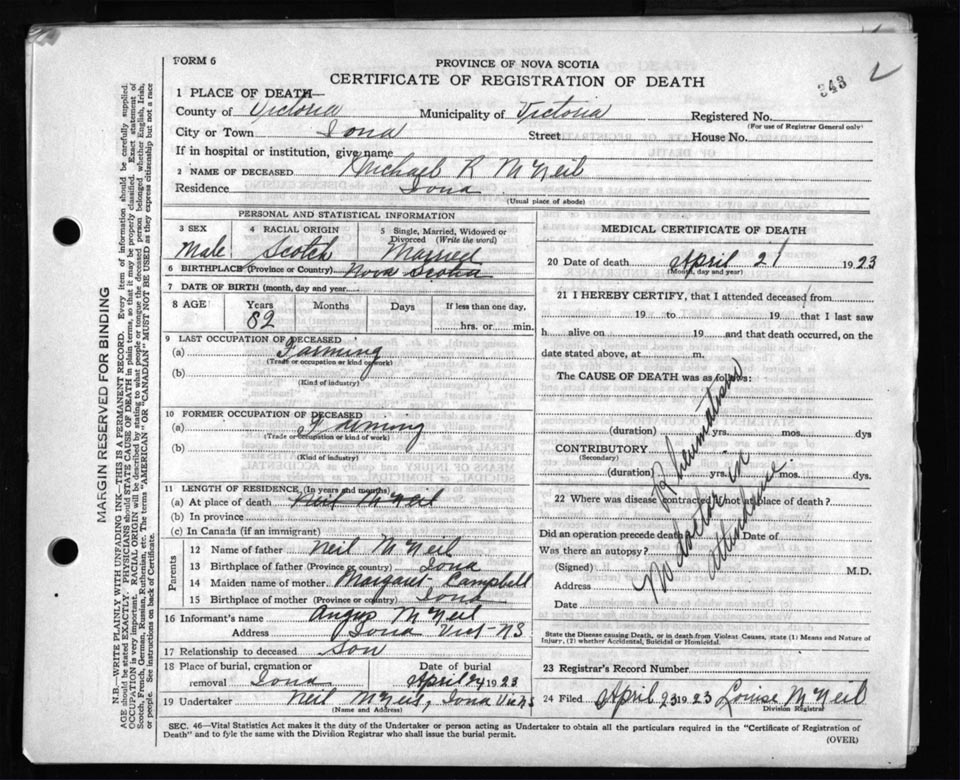 FORM 6
PROVINCE OF NOVA SCOTIA
CERTIFICATE OF REGISTRATION OF DEATH
343
1 PLACE OF DEATH—
County of Victoria Municipality of Victoria Registered No.
(For use of Registrar General only)
City or Town Iona Street House No.
If in hospital or institution, give name
2 NAME OF DECEASED Michael R McNeil
Residence Iona
(Usual place of abode)
PERSONAL AND STATISTICAL INFORMATION
3 SEX 4 RACIAL ORIGIN 5 Single, Married, Widowed or Divorced (Write the word)
Male Scotch Married
6 BIRTHPLACE (Province or Country) Nova Scotia
7 DATE OF BIRTH (month, day and year)
8 AGE Years Months Days If less than one day,
82 hrs. or min.
9 LAST OCCUPATION OF DECEASED
(a) Farming
(Trade or occupation or kind of work)
(b)
(Kind of industry)
10 FORMER OCCUPATION OF DECEASED
(a) Farming
(Trade or occupation or kind of work)
(b)
(Kind of industry)
11 LENGTH OF RESIDENCE (In years and months)
(a) At place of death Neil McNeil
(b) In province
(c) In Canada (if an immigrant)
Parents
12 Name of father Neil McNeil
13 Birthplace of father (Province or country) Iona
14 Maiden name of mother Margaret Campbell
15 Birthplace of mother (Province or country) Iona
16 Informant's name Angus McNeil
Address Iona Vict- NS
17 Relationship to deceased Son
18 Place of burial, cremation or removal Iona Date of burial April 24 1923
19 Undertaker Neil McNeil, Iona Vic NS
(Name and Address)
MEDICAL CERTIFICATE OF DEATH
20 Date of death April 21 1923
(Month, day and year)
21 I HEREBY CERTIFY, that I attended deceased from
19 to 19 that I last saw
h alive on 19 and that death occurred, on
date stated above, at m.
The CAUSE OF DEATH was as follows:
Rheumatism
No doctor in
attendance
(duration) yrs. mos. dys
CONTRIBUTORY
(Secondary)
(duration) yrs. mos. dys
22 Where was disease contracted if not at place of death?
Did an operation precede death? Date of
Was there an autopsy?
(Signed) M.D.
Address
Date
State the Disease causing Death, or in death from Violent Causes, state (1) Means and Nature of Injury, (2) whether Accidental, Suicidal or Homicidal.
23 Registrar's Record Number
24 Filed April 23 1923 Louise McNeil
Division Registrar
SEC. 46—Vital Statistics Act makes it the duty of the Undertaker or person acting as Undertaker to obtain all the particulars required in the "Certificate of Registration of
Death" and to fyle the same with the Division Registrar who shall issue the burial permit.
(OVER)
MARGIN RESERVED FOR BINDING
N.B.—WRITE PLAINLY WITH UNFADING INK—THIS IS A PERMANENT RECORD. Every item of information should be carefully supplied.
AGE should be stated EXACTLY. PHYSICIANS should STATE CAUSE OF DEATH in plain terms, so that it may be properly classified. Exact statement of
OCCUPATION is very important. RACIAL ORIGIN will be described by stating to what people or tongue the deceased person belonged whether English, Irish,
Scotch, French, German, Russian, Ruthenian, etc. The terms "AMERICAN" or "CANADIAN" MUST NOT BE USED as they express citizenship but not a race
or people. See instructions on back of Certificate.